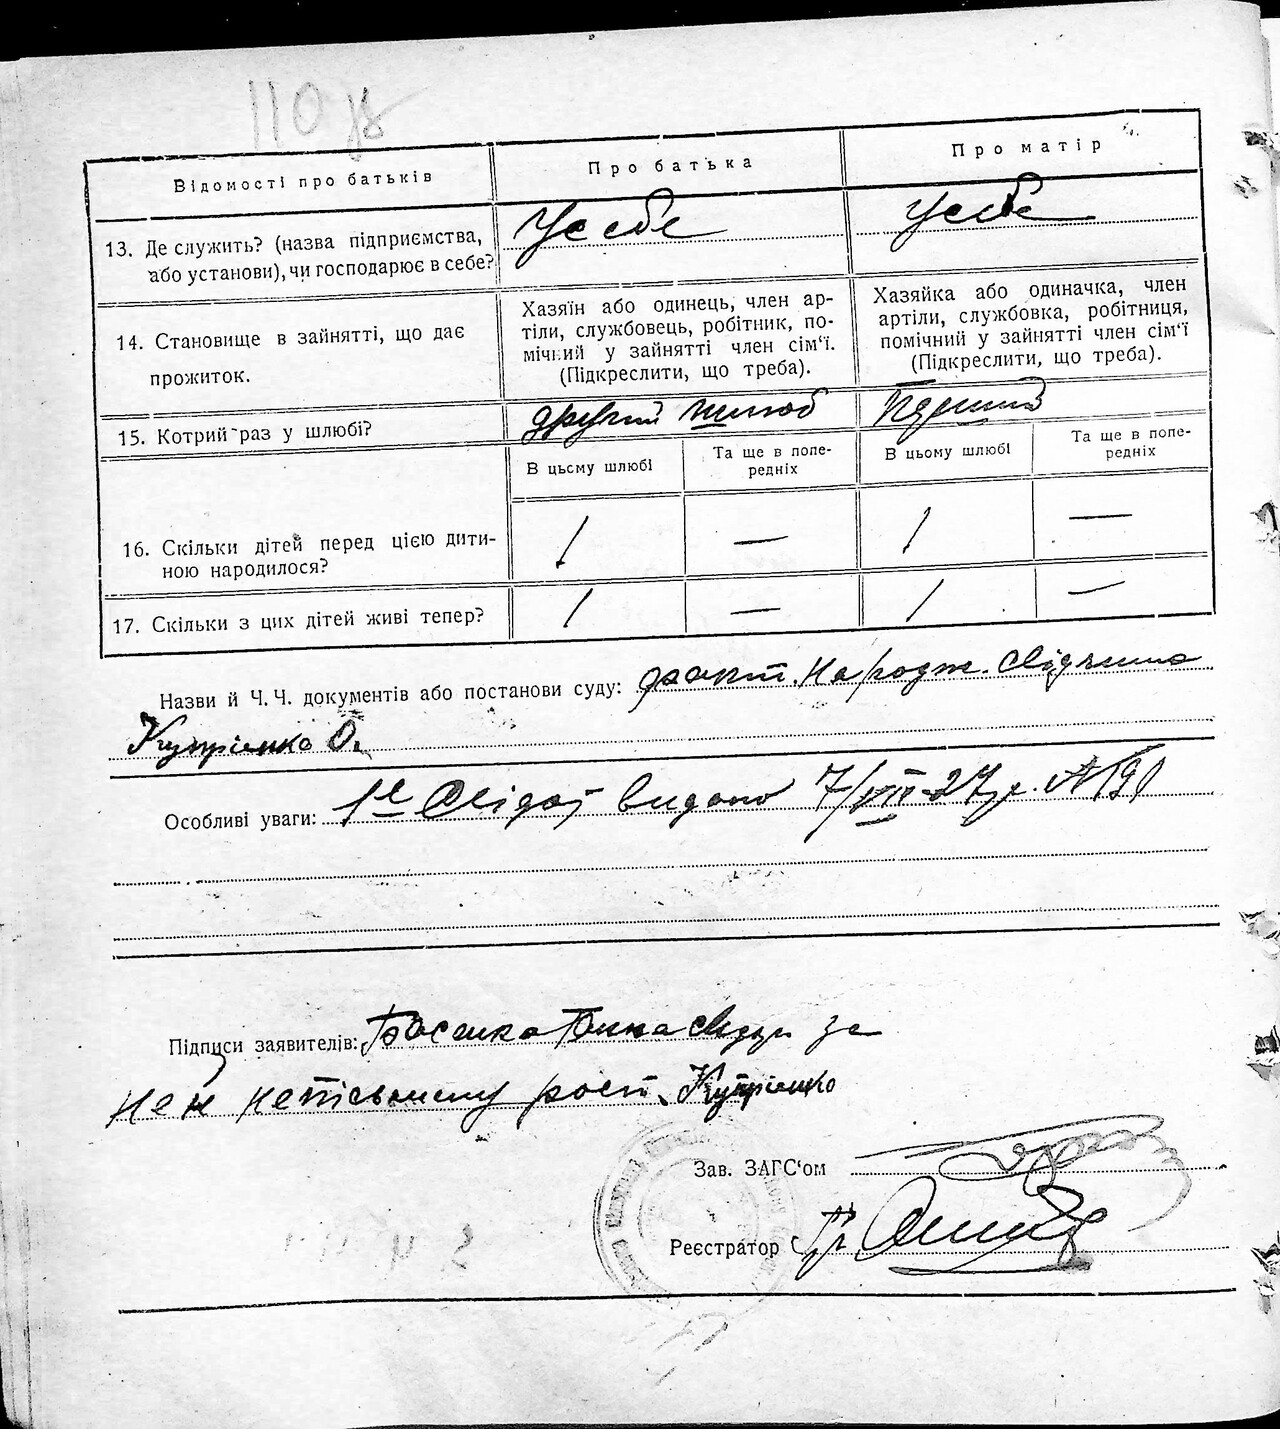 110
Відомості про батьків
Про батька
Про матір
13. Де служить? (назва підприємства,
або установи), чи господарює в себе?
У себе
У себе
14. Становище в зайнятті, що дає
прожиток.
Хазяїн або одинець, член ар-
тіли, службовець, робітник, по-
мічний у зайнятті член сім'ї.
(Підкреслити, що треба).
Хазяйка або одиначка, член
артіли, службовка, робітниця,
помічний у зайнятті член сім'ї
(Підкреслити, що треба).
15. Котрий раз у шлюбі?
другий шлюб
Перший
В цьсму шлюбі
Та ще в попе-
редніх
В цьому шлюбі
Та ще в попе-
редніх
16. Скільки дітей перед цією дити-
ною народилося?
1
—
1
—
17. Скільки з цих дітей живі тепер?
1
—
1
—
Назви й Ч. Ч. документів або постанови суду: факт. народж.
Купрієнко О.
Особливі уваги: видано 7/VII-27 р. №191
Підписи заявителів: за
неї неписьменну розп. Купрієнко
Зав. ЗАГС'ом
Реєстратор